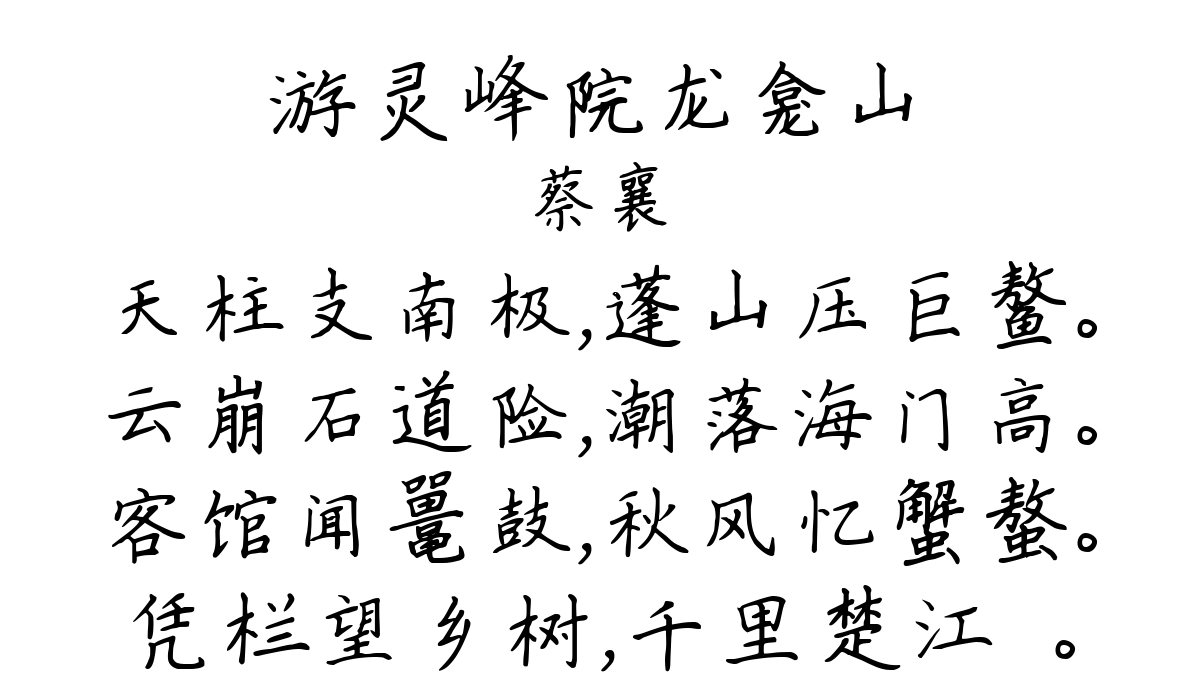 游灵峰院龙龛山
蔡襄
天柱支南极,蓬山压巨鳌。
云崩石道险,潮落海门高。
客馆闻鼍鼓,秋风忆蟹螯。
凭栏望乡树,千里楚江 。